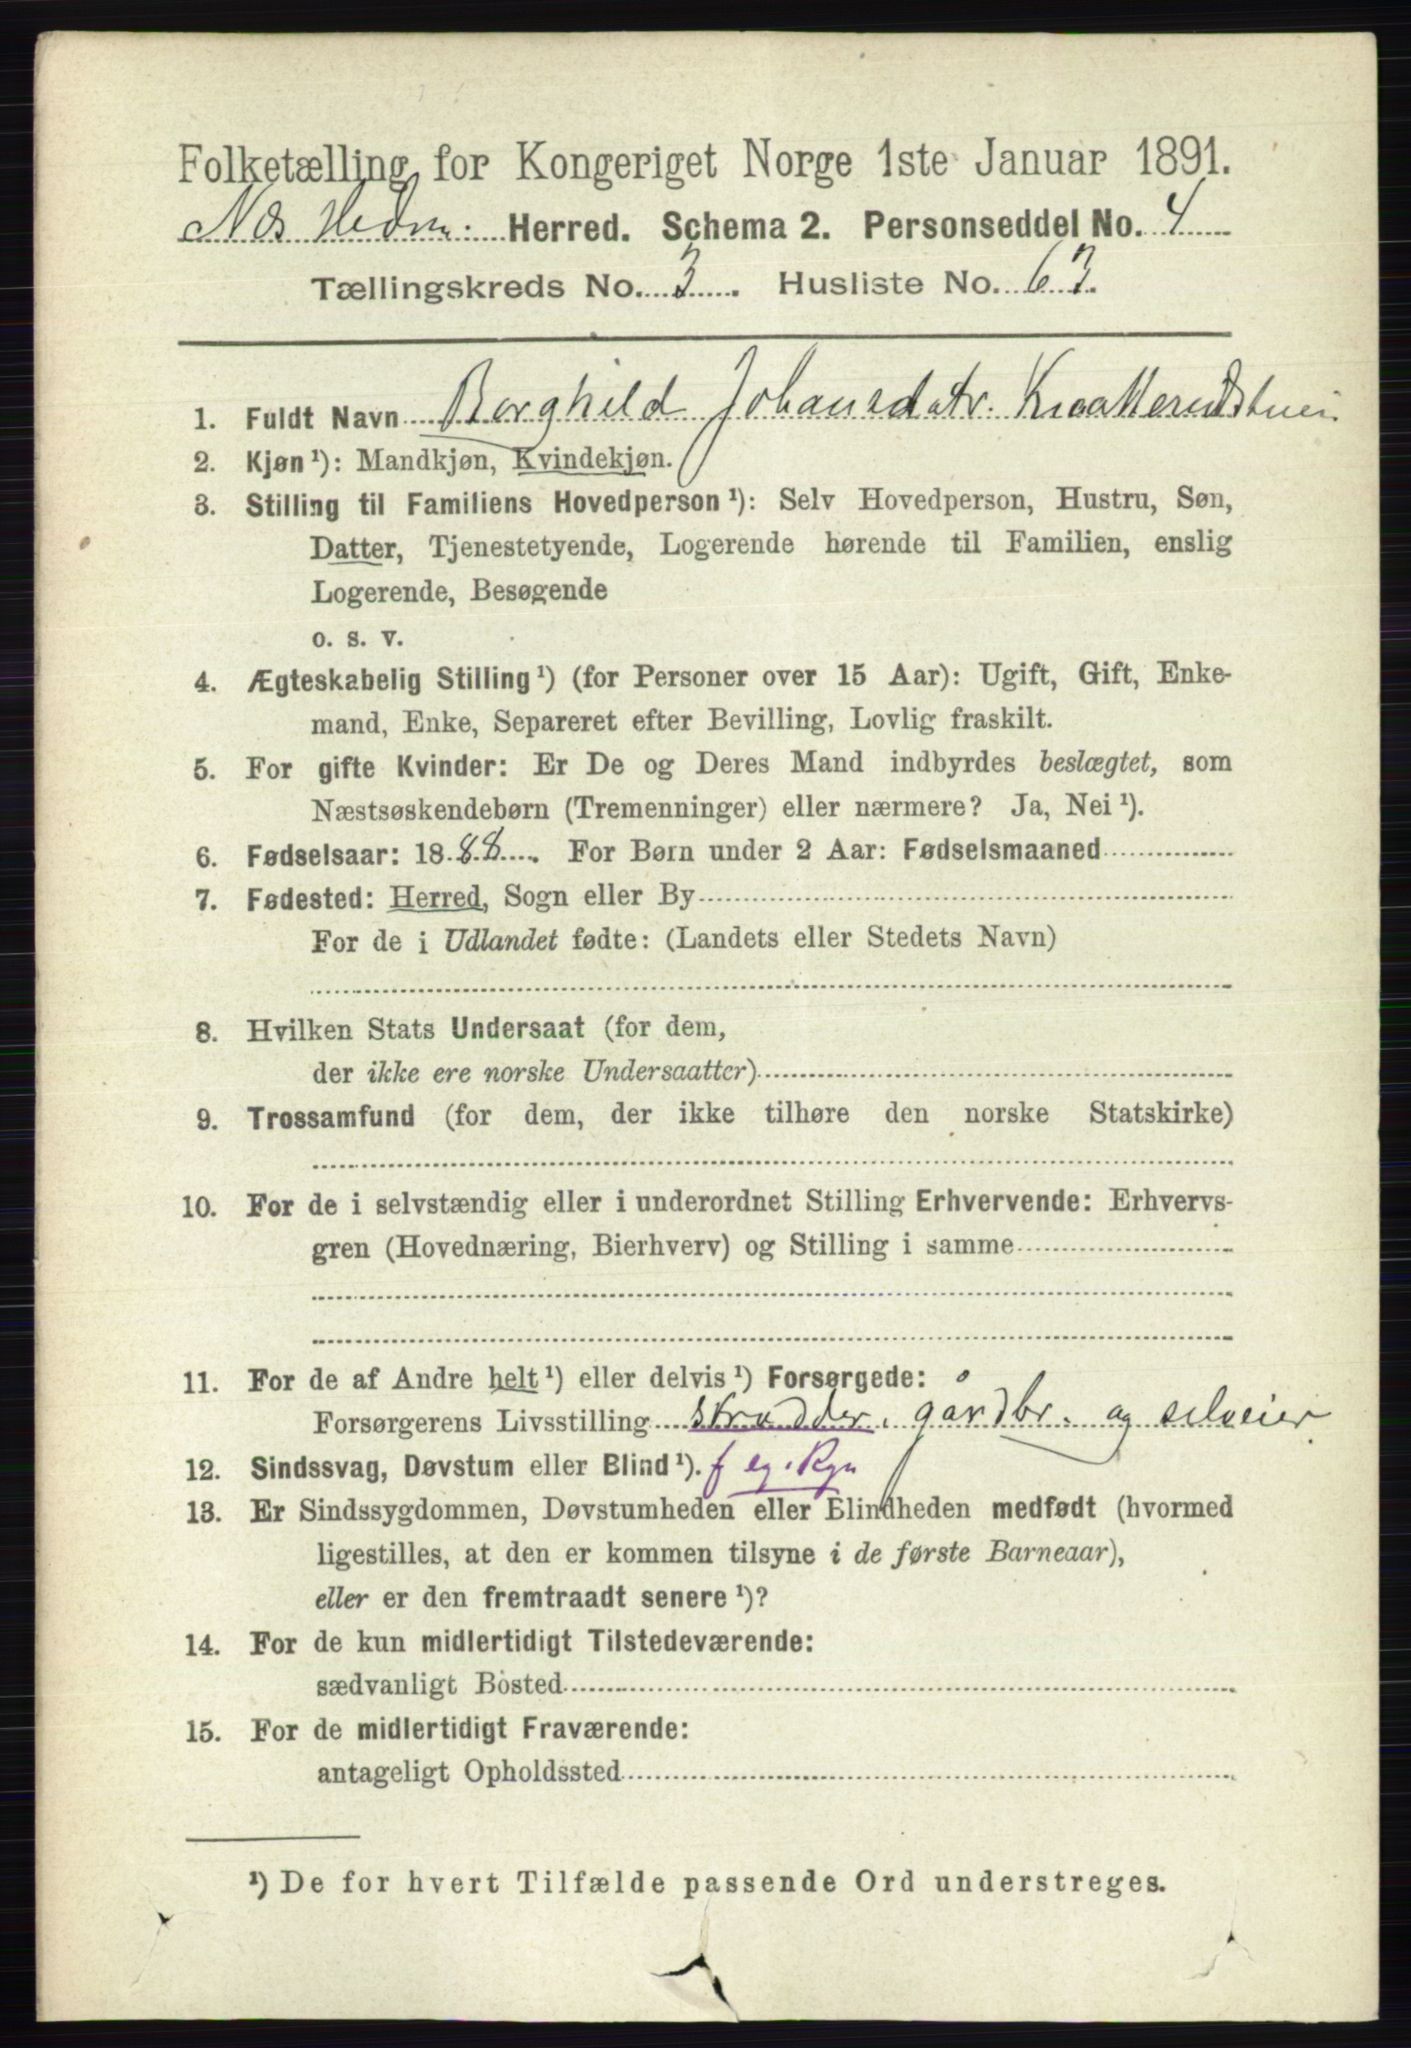 Folketælling for Kongeriget Norge 1ste Januar 1891.
Nes Hedm. Herred. Schema 2. Personseddel No. 4
Tællingskreds No. 3. Husliste No. 63.
1. Fuldt Navn Borghild Johansdatr.
2. Kjøn ¹): Mandkjøn, Kvindekjøn.
3. Stilling til Familiens Hovedperson ¹): Selv Hovedperson, Hustru, Søn,
Datter, Tjenestetyende, Logerende hørende til Familien, enslig
Logerende, Besøgende
o. s. v.
4. Ægteskabelig Stilling ¹) (for Personer over 15 Aar): Ugift, Gift, Enke-
mand, Enke, Separeret efter Bevilling, Lovlig fraskilt.
5. For gifte Kvinder: Er De og Deres Mand indbyrdes beslægtet, som
Næstsøskendebørn (Tremenninger) eller nærmere? Ja, Nei ¹).
6. Fødselsaar: 1888. For Børn under 2 Aar: Fødselsmaaned
7. Fødested: Herred, Sogn eller By
For de i Udlandet fødte: (Landets eller Stedets Navn)
8. Hvilken Stats Undersaat (for dem,
der ikke ere norske Undersaatter)
9. Trossamfund (for dem, der ikke tilhøre den norske Statskirke)
10. For de i selvstændig eller i underordnet Stilling Erhvervende: Erhvervs-
gren (Hovednæring, Bierhverv) og Stilling i samme
11. For de af Andre helt ¹) eller delvis ¹) Forsørgede:
Forsørgerens Livsstilling skrædder, gårdbr. og selveier
12. Sindssvag, Døvstum eller Blind ¹). f eg. Rgn
13. Er Sindssygdommen, Døvstumheden eller Blindheden medfødt (hvormed
ligestilles, at den er kommen tilsyne i de første Barneaar),
eller er den fremtraadt senere ¹)?
14. For de kun midlertidigt Tilstedeværende:
sædvanligt Bosted
15. For de midlertidigt Fraværende:
antageligt Opholdssted
¹) De for hvert Tilfælde passende Ord understreges.